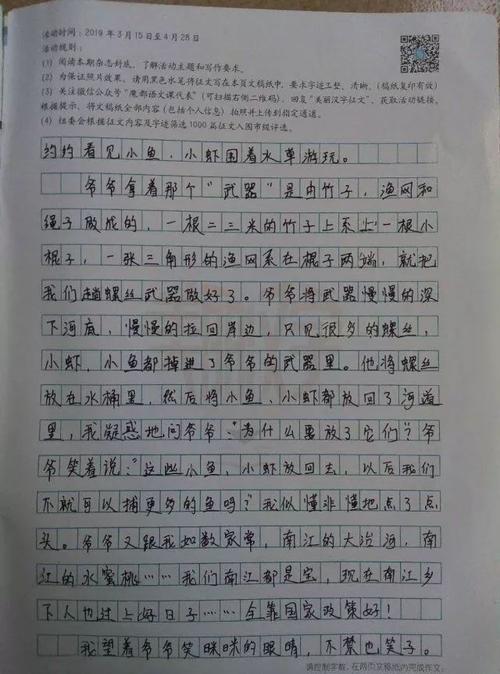 活动时间：2019年3月15日至4月28日
活动规则：
(1) 阅读本期杂志封底，了解活动主题和写作要求。
(2) 为保证照片效果，请用黑色水笔将征文写在本页文稿纸中，要求字迹工整、清晰。(稿纸复印有效)
(3) 关注微信公众号“魔都语文课代表”(可扫描右侧二维码)，回复“美丽汉字征文”，获取活动链接，
根据提示，将文稿纸全部内容(包括个人信息)拍照并上传到指定通道。
(4) 组委会根据征文内容及字迹筛选1000篇征文入围市级评选。
约约看见小鱼，小虾围着水草游玩。
爷爷拿着那个“武器”是由竹子，渔网和
绳子做成的，一根二三米的竹子上系上一根小
棍子，一张三角形的渔网系在棍子两端，就把
我们趟螺丝武器做好了。爷爷将武器慢慢的深
下河底，慢慢的拉回岸边，只见很多的螺丝，
小虾，小鱼都掉进了爷爷的武器里。他将螺丝
放在水桶里，然后将小鱼、小虾都放回了河道
里，我疑惑地问爷爷：“为什么要放了它们？”爷
爷笑着说：“这些小鱼，小虾放回去，以后我们
不就可以捕更多的鱼吗？”我似懂非懂地点了点
头。爷爷又跟我如数家常，南江的大治河，南
江的水蜜桃……我们南江都是宝，现在南江乡
下人也过上好日子……全靠国家政策好！
我望着爷爷笑眯眯的眼睛，不禁也笑了。
请控制字数，在两页文稿纸内完成作文。